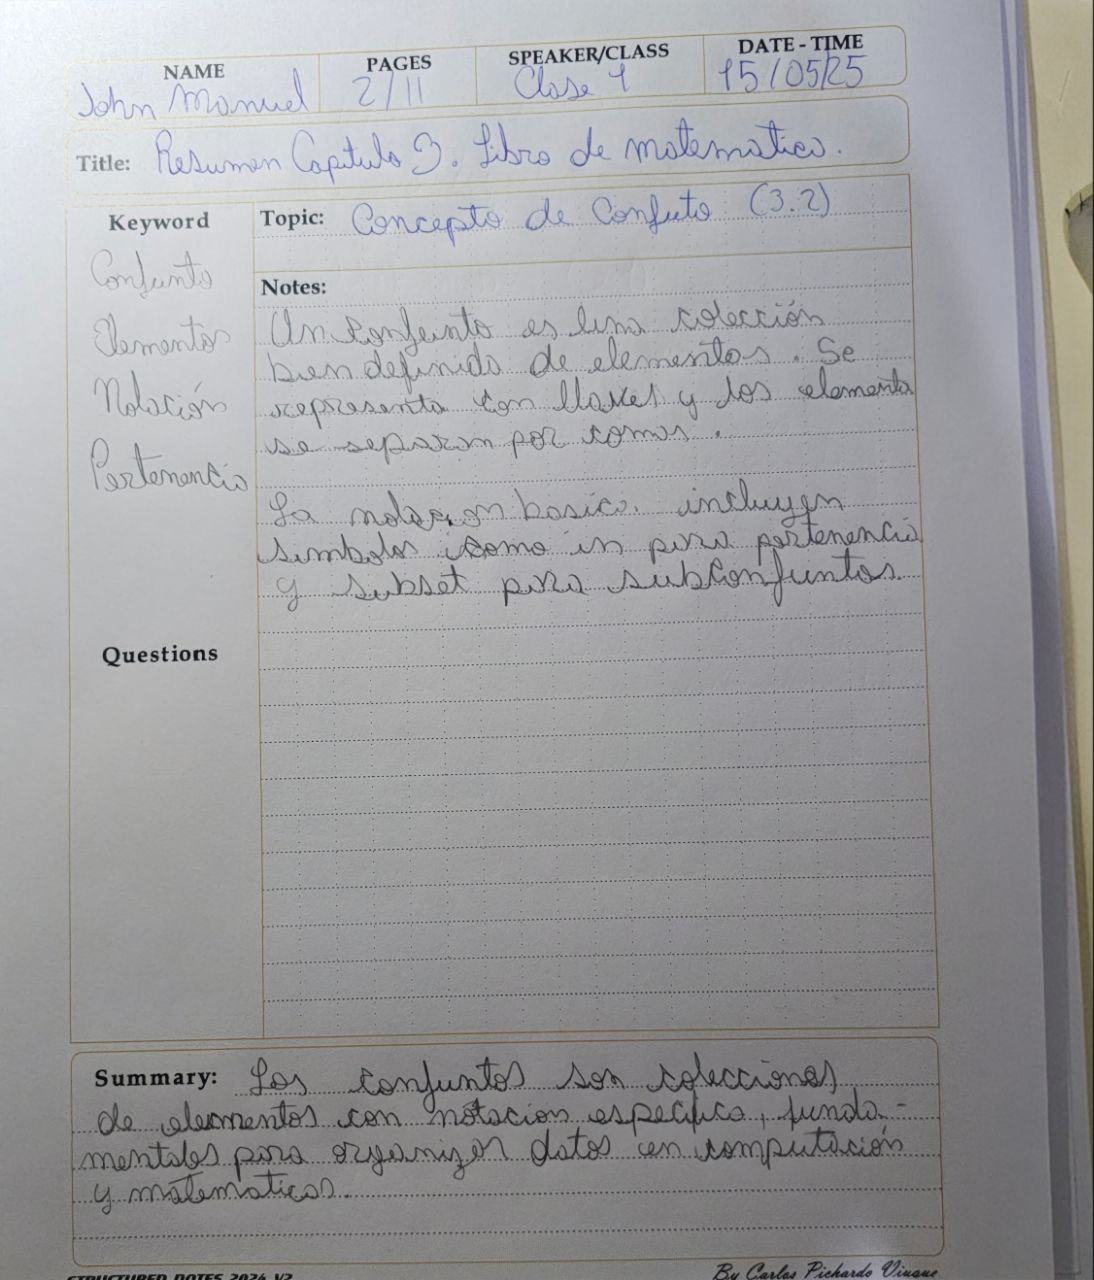 NAME PAGES SPEAKER/CLASS DATE - TIME
John Manuel 2/11 Clase 1 15/05/25
Title: Resumen Capitulo 3. Libro de matematica.
Keyword
Conjunto
Elementos
Notación
Pertenencia
Questions
Topic: Concepto de Conjuto (3.2)
Notes:
Un conjunto es una colección
bien definida de elementos. Se
representa con llaves y los elementos
se separan por comas.
La notacion basica. incluyen
simbolos como in para pertenencia
y subset para subconjuntos.
Summary: Los conjuntos son colecciones
de elementos con notacion especifica, funda-
mentales para organizar datos en computación
y matematicas.
STRUCTURED NOTES 2024 V2
By Carlos Pichardo Viuque